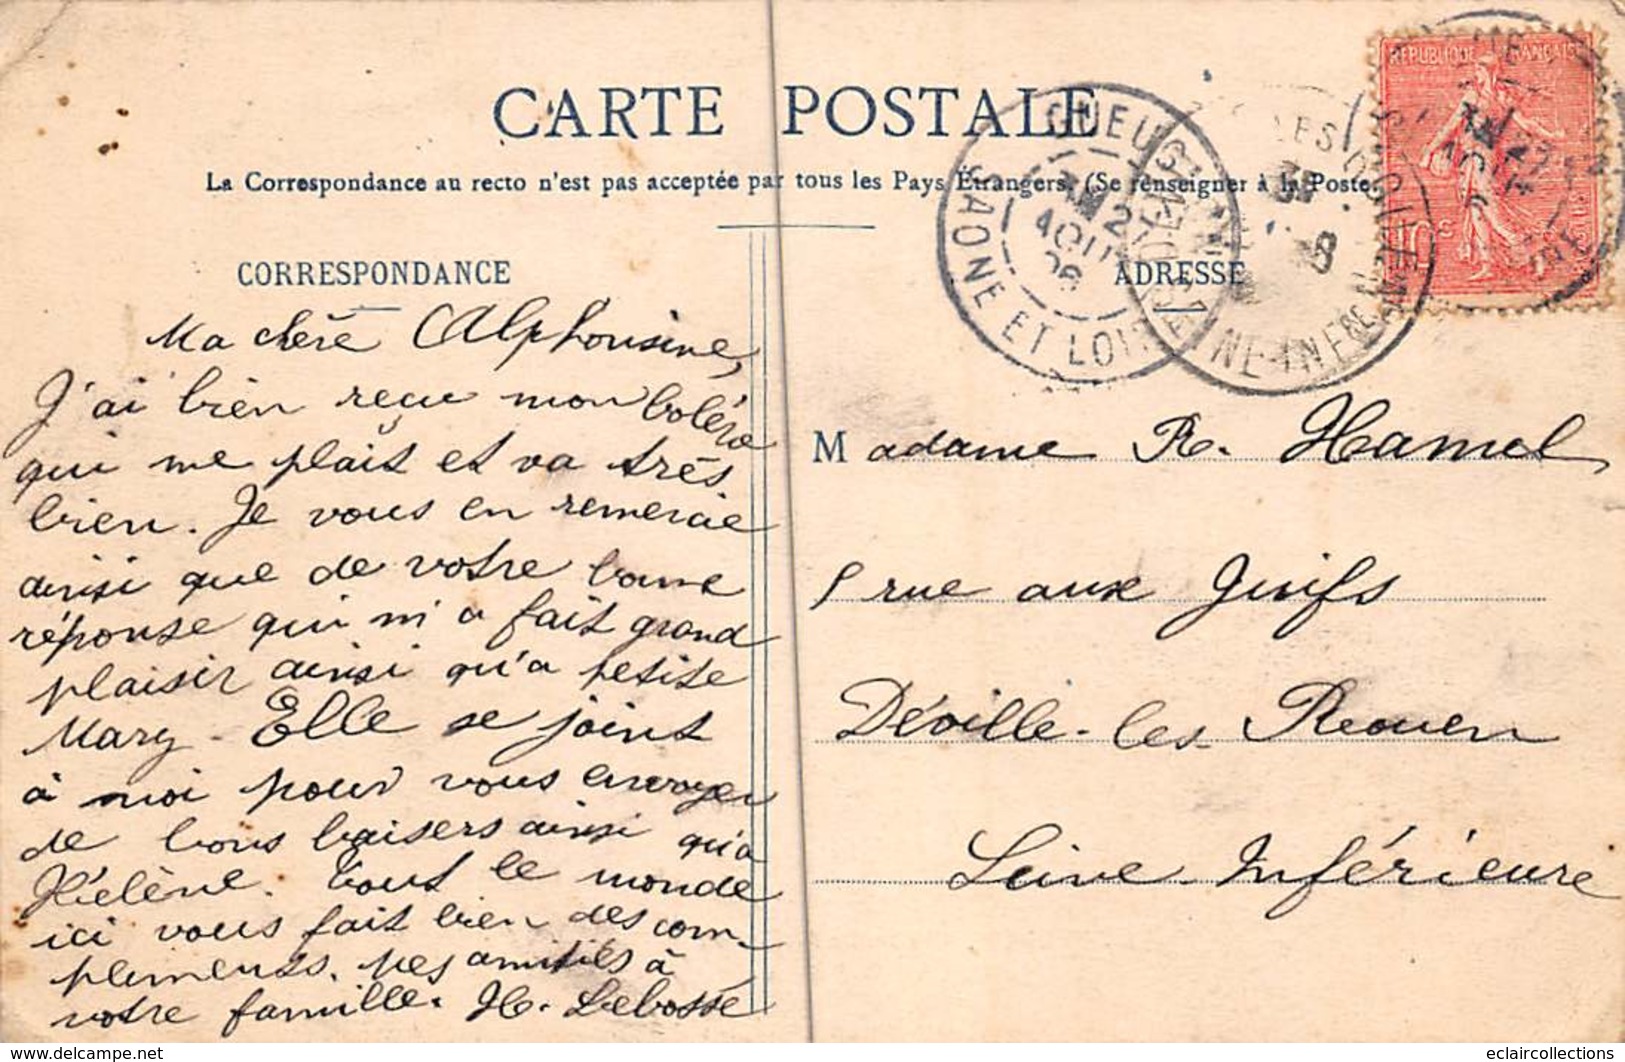 CARTE POSTALE
La Correspondance au recto n'est pas acceptée par tous les Pays Étrangers. (Se renseigner à la Poste.
CORRESPONDANCE
Ma chère Alphonsine,
J'ai bien reçu mon boléro
qui me plait et va très
bien. Je vous en remercie
ainsi que de votre bonne
réponse qui m'a fait grand
plaisir ainsi qu'a petite
Mary. Elle se joint
à moi pour vous envoyer
de bons baisers ainsi qu'a
Hélène. Tout le monde
ici vous fait bien des com-
pliments. Mes amitiés à
votre famille. H. Lebossé
ADRESSE
Madame R. Hamel
rue aux Juifs
Déville-les-Rouen
Seine-Inférieure
REPUBLIQUE FRANCAISE
10c
GUEUG
SAONE ET LOIRE
27
AOUT
06
NE-INFRE
www.delcampe.net
eclaircollections